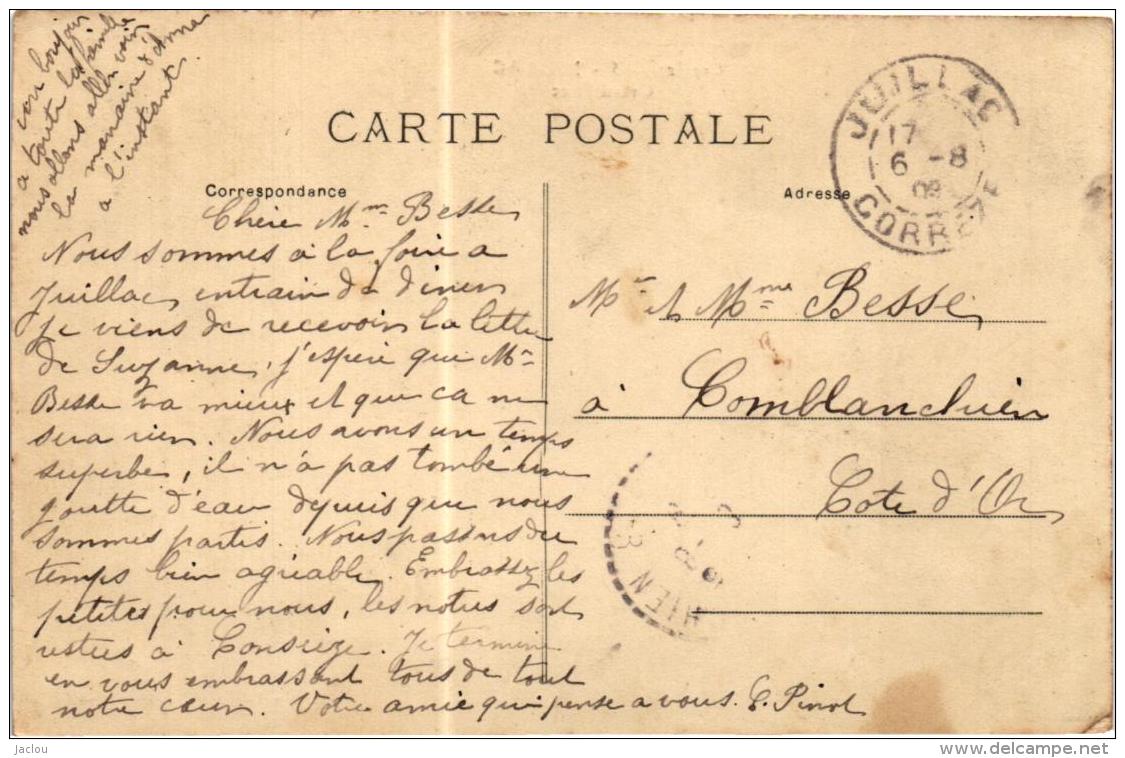 bon bonjour
a toute la famille
nous allons aller voir
la marraine d'Anna
a l'instant.
CARTE POSTALE
JUILLAC
17
6 -8
08
CORRÈZE
Correspondance
Adresse
Chère Mme Besse
Nous sommes à la foire a
Juillac, entrain de diner
je viens de recevoir la lettre
de Suzanne, j'espère que Mr
Besse va mieux et que ca ne
sera rien. Nous avons un temps
superbe, il n'a pas tombé une
goutte d'eau depuis que nous
sommes partis. Nous passons du
temps bien agréable. Embrassez les
petites pour nous, les notres sont
restées à Conseize. Je termine
en vous embrassant tous de tout
notre cœur. Votre amie qui pense a vous. E. Pinot
Mr et Mme Besse
à Comblanchien
Cote d'Or
HIEN
jaclou
www.delcampe.net